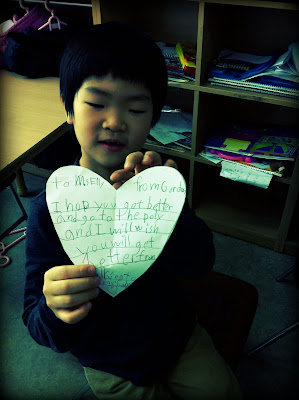 to MsElly from
I hop you got better
and go to the poly
and I will wish
you will got
better from